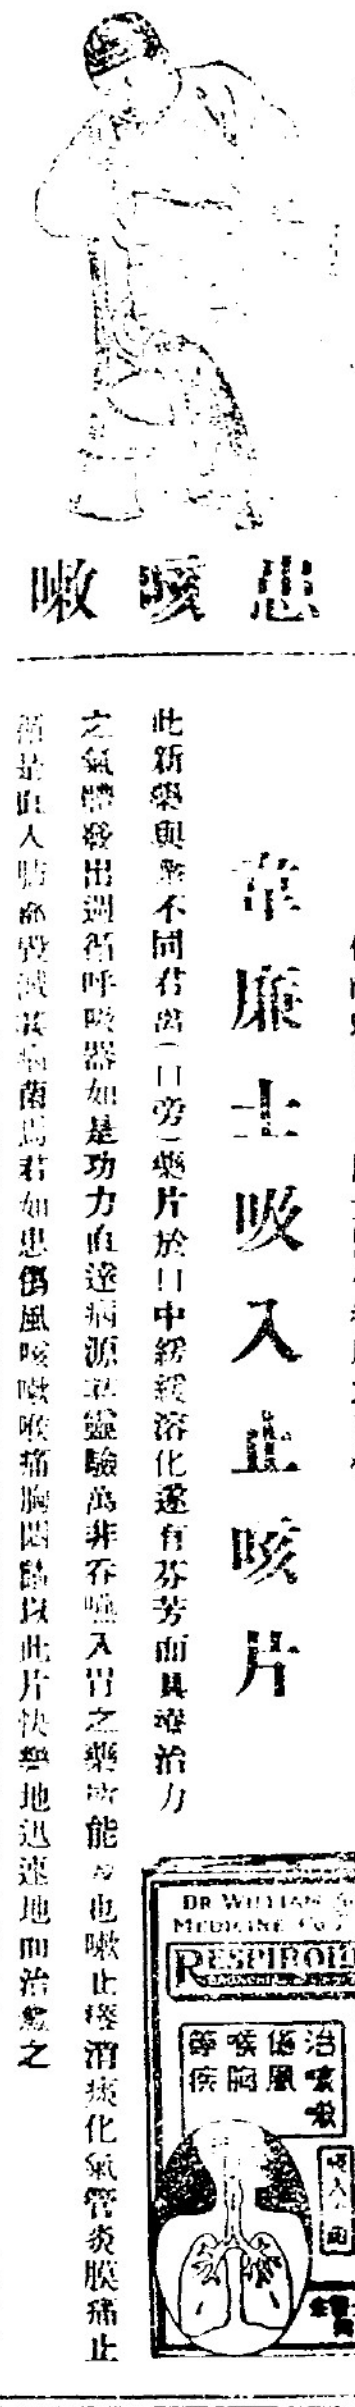 患咳嗽
韋廉士吸入止咳片
此新藥與眾不同君含(口旁)藥片於口中緩緩溶化遂有芬芳而具療治力
之氣體發出週循呼吸器如是功力直達病源其靈驗萬非吞嚥入胃之藥所能及也嗽止痰消痰化氣管炎膜痛止
是直人肺部毀滅其病菌焉君如患傷風咳嗽喉痛胸悶請以此片快樂地迅速地而治愈之
DR WILLIAMS
MEDICINE Co
RESPIROID
治咳嗽
傷風
喉胸
等疾
吸入